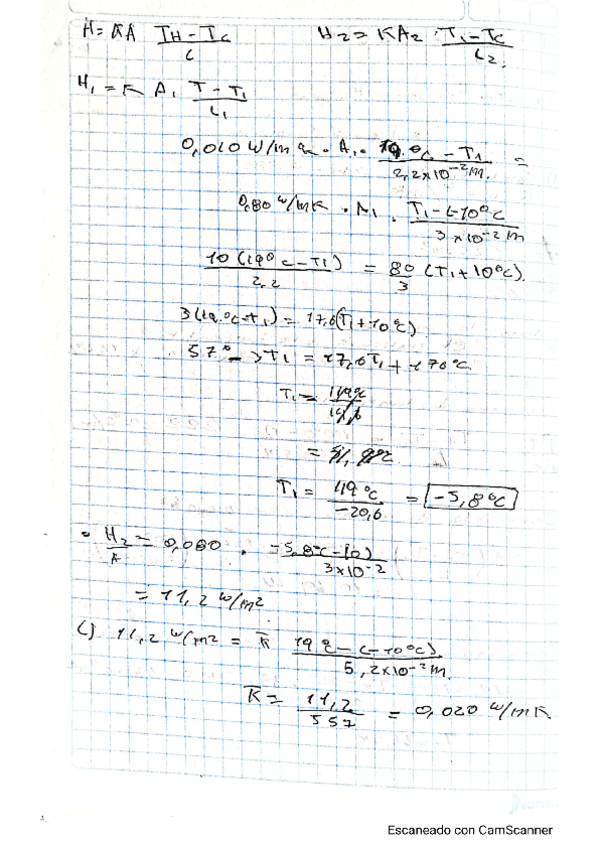 H = KA (TH - Tc) / L
H2 = KA2 · (T1 - Tc) / L2
H1 = K A1 (T - T1) / L1
0,010 W/m · A1 · (19°C - T1) / (2,2x10^-2 m) =
0,80 W/mK · A1 · (T1 - (-10°C) / (3x10^-2 m)
10 (19°C - T1) / 2,2 = 80/3 (T1 + 10°C).
3(19°C-T1) = 17,6(T1 + 10°C)
57° - 3T1 = 17,6T1 + 170°C
T1 = 119°C
T1 = 119°C / -20,6 = -5,8°C
H2/A = 0,080 · (-5,8°C - 10) / (3x10^-2)
= 11,2 W/m2
C) 11,2 W/m2 = K (19°C - (-10°C)) / (5,2x10^-2 m.)
K = 11,2 / 557 = 0,020 W/mK
Escaneado con CamScanner